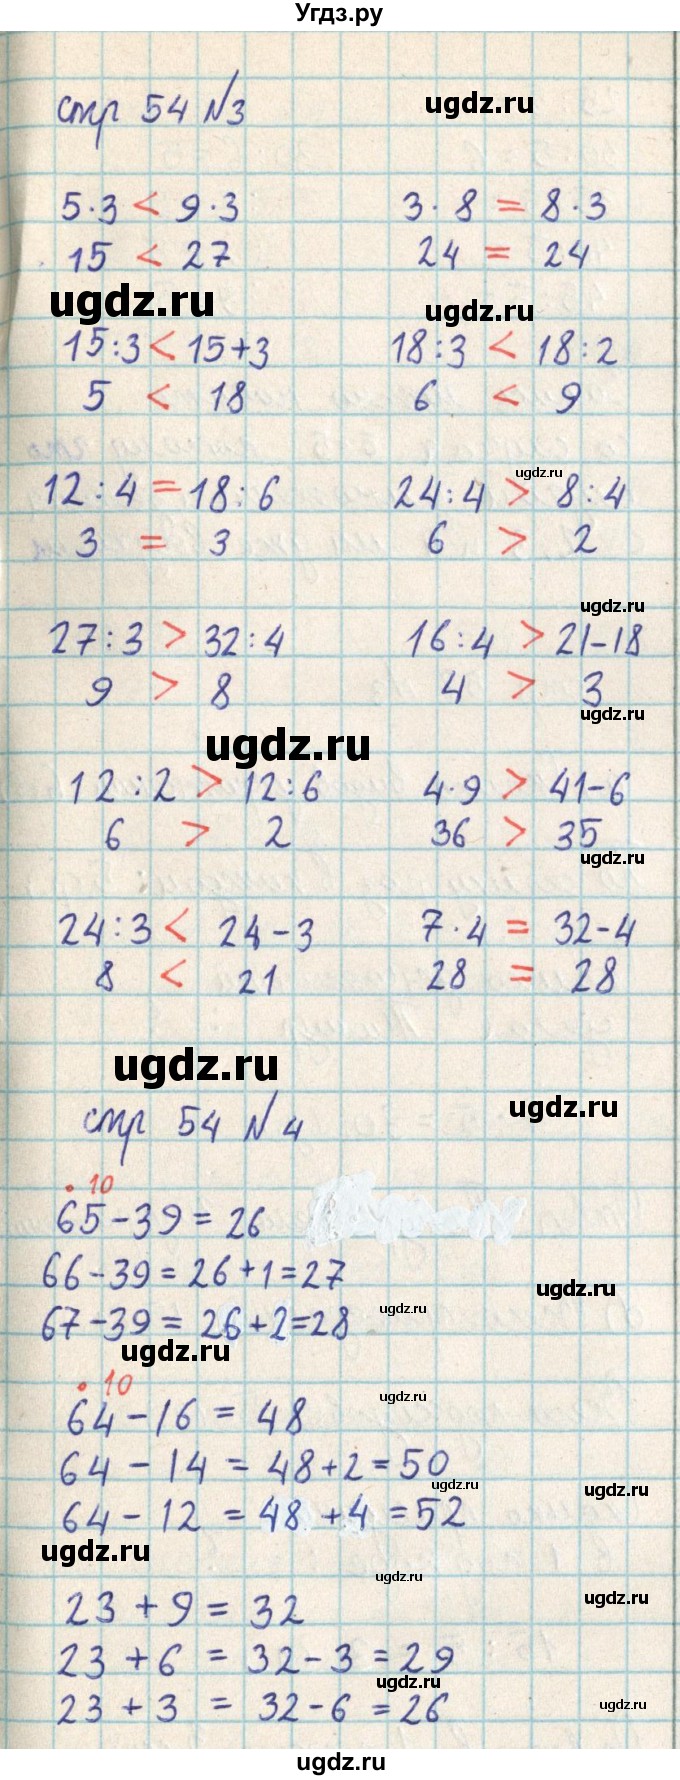 Угдз.ру
стр 54 №3
ugdz.ru
5·3 < 9·3
3·8 = 8·3
15 < 27
24 = 24
ugdz.ru
ugdz.ru
15:3 < 15+3
18:3 < 18:2
5 < 18
6 < 9
ugdz.ru
12:4 = 18:6
24:4 > 8:4
3 = 3
6 > 2
ugdz.ru
27:3 > 32:4
16:4 > 21-18
9 > 8
4 > 3
ugdz.ru
ugdz.ru
12:2 > 12:6
4·9 > 41-6
6 > 2
36 > 35
ugdz.ru
24:3 < 24-3
7·4 = 32-4
8 < 21
28 = 28
ugdz.ru
ugdz.ru
стр 54 №4
. 10
65-39 = 26
66-39 = 26+1=27
ugdz.ru
67-39 = 26+2=28
ugdz.ru
ugdz.ru
. 10
ugdz.ru
64-16 = 48
64-14 = 48+2=50
ugdz.ru
ugdz.ru
64-12 = 48+4=52
ugdz.ru
ugdz.ru
ugdz.ru
23+9 = 32
23+6 = 32-3=29
ugdz.ru
23+3 = 32-6=26
ugdz.ru
ugdz.ru